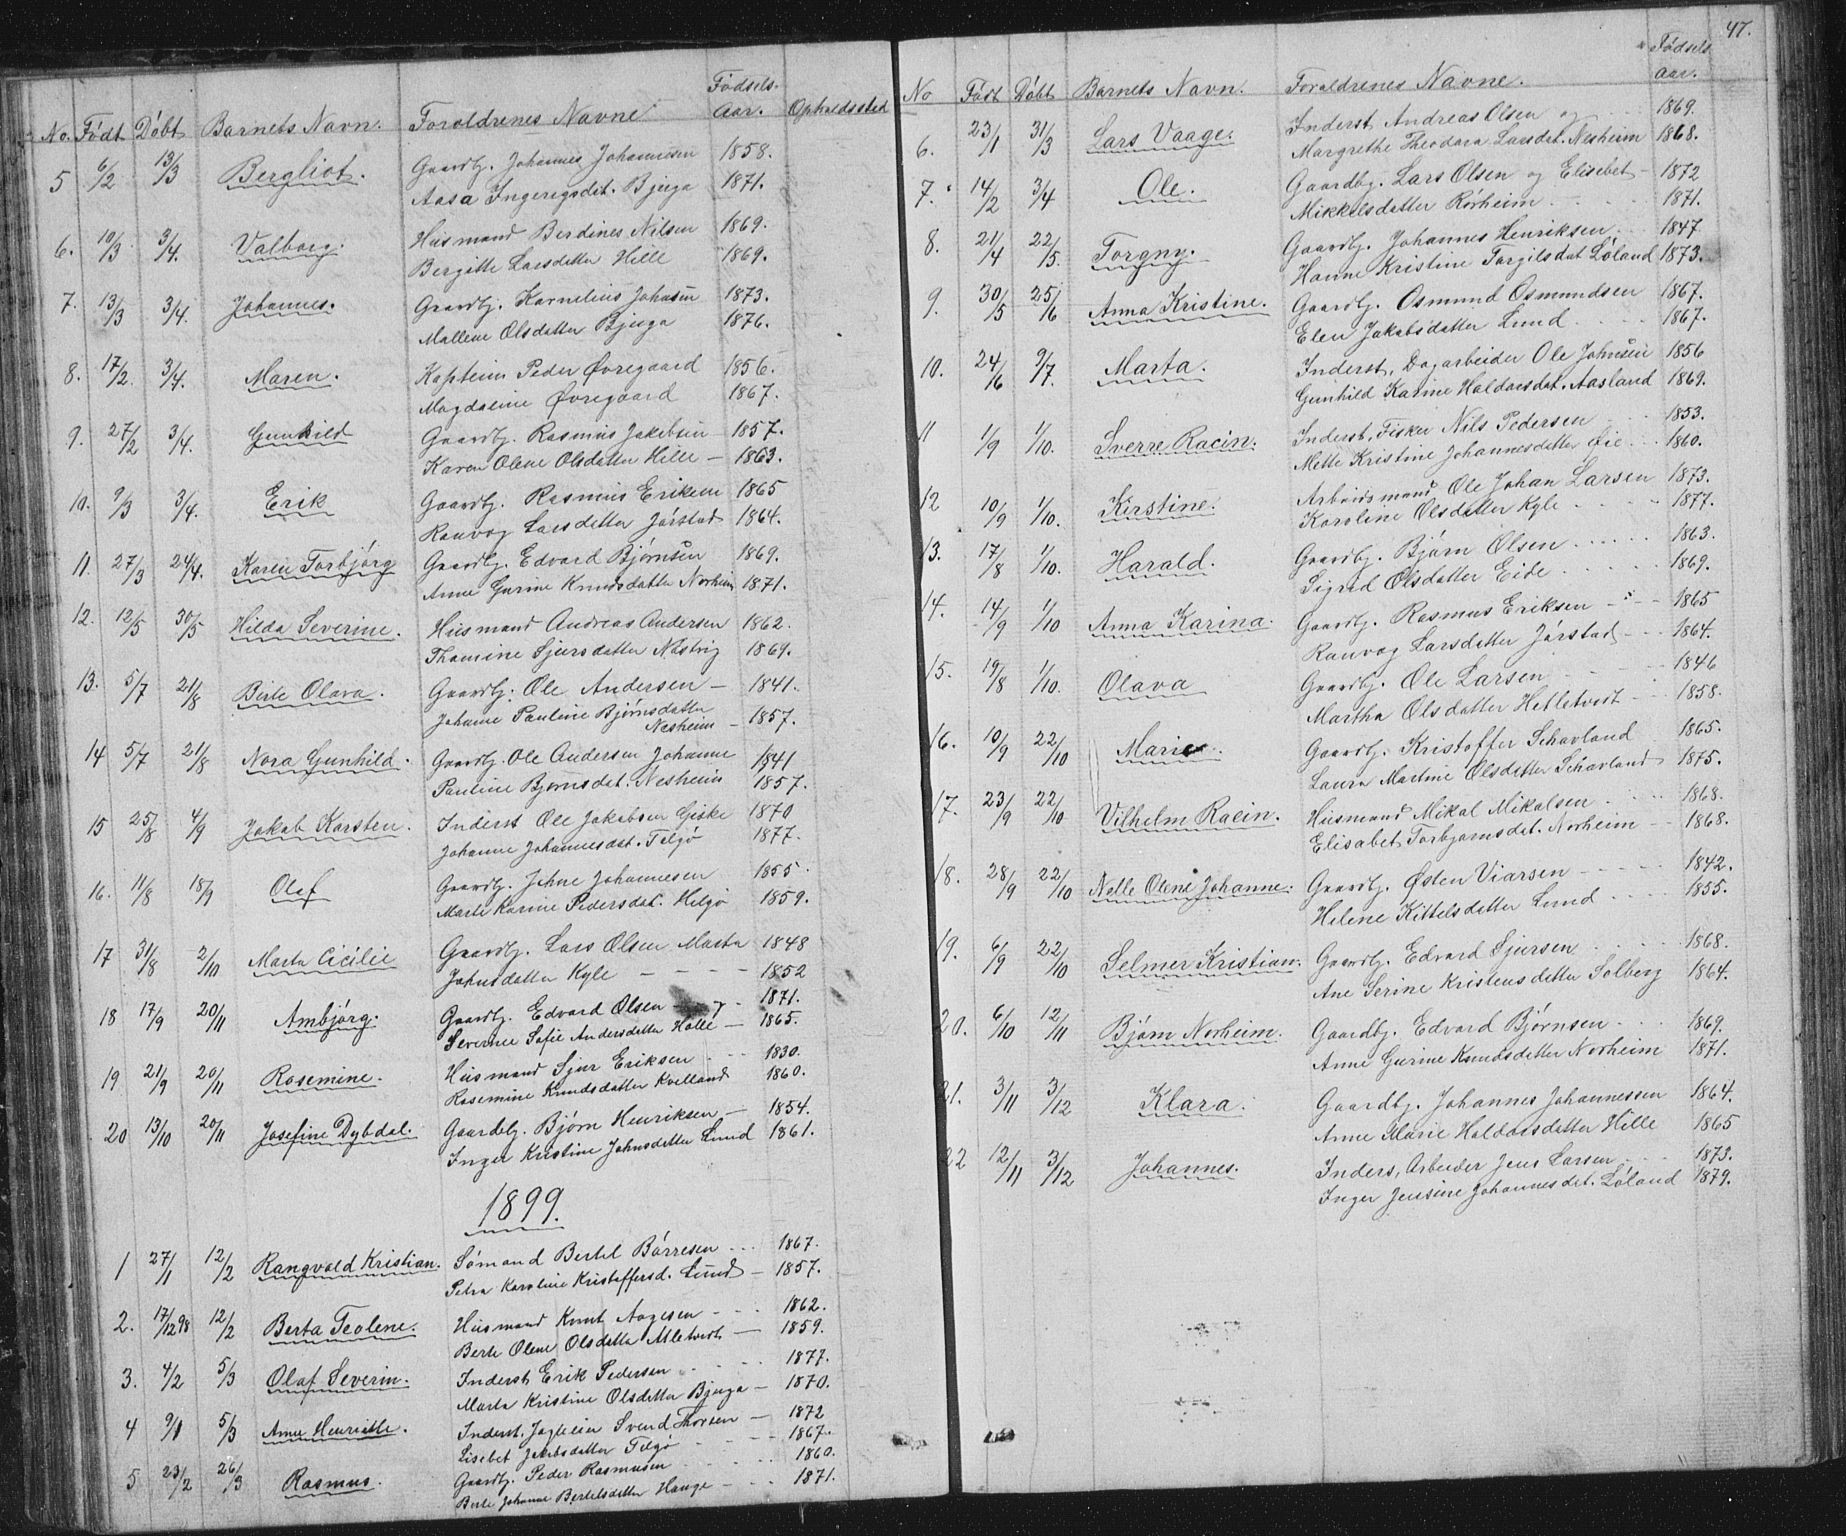 No. Født Døbt Barnets Navn. Foræeldrenes Navne Fødsels-aar. Opholdssted
5 6/2 13/3 Bergliot. Gaardbr. Johannes Johannesen 1858.
Aasa Ingerigsdat. Bjuga 1871.
6. 10/3 3/4. Valborg. Husmand Berdines Nilsen 1869.
Bergitte Larsdatter Hille 1869.
7. 13/3 3/4. Johannes. Gaardbr. Kornelius Johnsen 1873.
Mallene Olsdatter Bjuga 1876.
8. 17/2. 3/4. Maren. Kaptein Peder Øvregaard 1856.
Magdaline Øvregaard 1867.
9. 27/2 3/4. Gunhild Gaardbr. Rasmus Jakobsen 1857.
Karen Olene Olsdatter Hille – 1863.
10. 9/3 3/4. Erik Gaardbr. Rasmus Eriksen 1865
Ranvog Larsdatter Jørstad 1864.
11. 27/3 24/4. Karen Torbjørg Gaardbr. Edvard Bjørnsen 1869.
Anne Gurine Knudsdatter Norheim 1871.
12. 12/5 30/5 Hilda Severine. Husmand Andreas Andersen 1862.
Thomine Sjursdatter Nästvig 1869.
13. 5/7 21/8 Berte Olava. Gaardbr. Ole Andersen – 1841.
Johanne Pauline Bjørnsdatter
Nesheim – 1857.
14 5/7 21/8 Nora Gunhild. Gaardbr. Ole Andersen Johanne 1841
Pauline Bjørnsdat. Nesheim 1857.
15 25/8 4/9 Jakob Karsten. Inderst Ole Jakobsen Giske 1870
Johanne Johannesdat. Telgø 1877.
16. 11/8 18/9 Olaf Gaardbr. Jehne Johannesen 1855.
Marte Karine Pedersdat. Helgø 1859.
17 31/8 2/10 Marta Cicilie Gaardbr. Lars Olsen Marta 1848
Johnsdatter Kyle – – – – 1852
18 17/9 20/11 Ambjørg. Gaardbr. Edvard Olsen – og – 1871.
Severine Sofie Andersdatter Halle – 1865.
19 21/9 20/11 Rosemine. Husmand Sjur Eriksen 1830.
Rosemine Knudsdatter Kvelland 1860.
20 13/10 20/11 Josefine Dybdal. Gaardbr. Bjørn Henriksen – 1854.
Inger Kristine Johnsdatter Lund 1861.
1899.
1 27/1 12/2 Rangvald Kristian. Sømand Bertel Børresen 1867.
Petra Karoline Kristoffersd. Lund – 1857.
2. 17/12 98 12/2 Berta Teolene. Husmand Knut Aagesen 1862.
Berte Olene Olsdatter Altetvedt – 1859.
3. 4/2 5/3 Olaf Severin. Inderst Erik Pedersen 1877.
Marta Kristine Olsdatter Bjuga – 1870.
4 9/1 5/3 Anne Henriette. Inderst, Jagteier Svend Thorsen – 1872
Lisebet Jakobsdatter Telgø 1867.
5 23/2 26/3 Rasmus. Gaardbr. Peder Rasmusen 1860.
Berte Johanne Bertelsdatter Hauge – 1871.
47.
No Født Døbt Barnets Navn. Foraldrenes Navne. Fødsels aar.
6. 23/1 31/3 Lars Vaage. Inderst Andreas Olsen og 1869.
Margrethe Theodora Larsdat. Nesheim 1868.
7. 14/2 3/4 Ole. Gaardbr. Lars Olsen og Elisebet – 1872
Mikkelsdatter Rørheim 1871.
8. 21/4 22/5. Torgny. Gaardbr. Johannes Henriksen 1847.
Hanne Kristine Torgilsdat Løland 1873.
9. 30/5 25/6 Anna Kristine. Gaardbr. Osmund Osmundsen 1867.
Elen Jakobsdatter Lund 1867.
10. 24/16 9/7. Marta. Inderst, Dagarbeider Ole Johnsen 1856
Gunhild Karine Haldorsdat. Aasland 1869.
11 1/9 1/10. Sverre Racin. Inderst, Fisker Nils Pedersen 1853.
Mette Kristine Johannesdatter Øie 1860.
12 10/9 1/10. Kirstine. Arbeidsmand Ole Johan Larsen 1873.
Karoline Olsdatter Kyle 1877.
13. 17/8 1/10. Harald. Gaardbr. Bjørn Olsen 1863.
Sigrid Olsdatter Eide 1869.
14. 14/9 1/10 Anna Karina. Gaardbr. Rasmus Eriksen 1865
Ranvog Larsdatter Jørstad 1864.
15. 19/8 1/10. Olava Gaardbr. Ole Larsen 1846
Martha Olsdatter Hetletvedt 1858.
16. 10/9 22/10 Marie. Gaardbr. Kristoffer Schavland 1865.
Laura Martine Olsdatter Schavland 1875.
17. 23/9 22/10 Vilhelm Racin. Husmand Mikal Mikalsen 1868.
Elisabet Torbjørnsdat. Norheim 1868.
18. 28/9 22/10 Nelle Olene Johanne. Gaardbr. Østen Viarsen 1842.
Helene Kittelsdatter Lund 1855.
19. 6/9 22/10 Selmer Kristian. Gaardbr. Edvard Sjursen 1868.
Ane Serine Kristensdatter Solberg 1864.
20. 6/10 12/11 Bjørn Norheim. Gaardbr. Edvard Bjørnsen 1869.
Anne Gurine Knudsdatter Norheim 1871.
21. 3/11 3/12 Klara. Gaardbr. Johannes Johannessen 1864.
Anne Marie Haldorsdatter Hille 1865
22 12/11 3/12 Johannes. Inders, Arbeider Jens Larsen 1873.
Inger Jensine Johannesdat. Løland 1879.